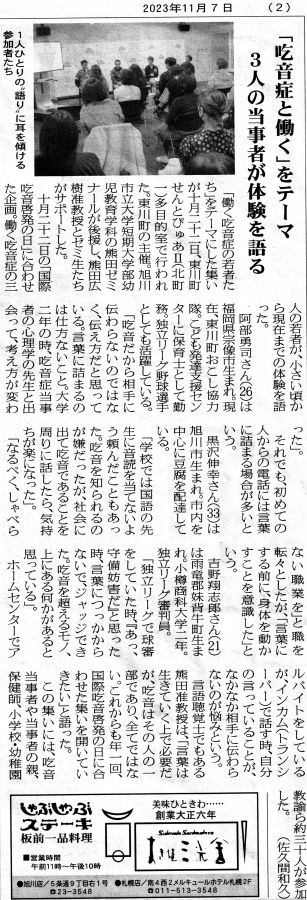 2023年11月７日 （２）
「吃音症と働く」をテーマ
３人の当事者が体験を語る
１人ひとりの〝語り〟に耳を傾ける
参加者たち
「働く吃音症の若者た
ち」をテーマにした集い
が十月二十二日、東川町
せんとぴゅあⅡ（北町
一）多目的室で行われ
た。東川町の主催、旭川
市立大学短期大学部幼
児教育学科の熊田ゼミ
ナールが後援し、熊田広
樹准教授とゼミ生たち
がサポートした。
十月二十二日の「国際
吃音啓発の日」に合わせ
た企画。働く吃音症の三
人の若者が、小さい頃か
ら現在までの体験を語
った。
阿部勇司さん（26）は
福岡県宗像市生まれ。現
在、東川町地おこし協力
隊。こども発達支援セン
ターに保育士として勤
務。独立リーグ野球選手
としても活躍している。
「吃音だから相手に
伝わらないのではな
く、伝え方だと思って
いる。言葉に詰まるの
は仕方ないこと。大学
二年の時、吃音症当事
者の心理学の先生と出
会って、考え方が変わ
った」。
それでも、初めての
人からの電話には言葉
に詰まる場合が多いと
いう。
黒沢伸幸さん（33）は
旭川市生まれ。市内を
中心に豆腐を配達して
いる。
「学校では国語の先
生に音読を当てないよ
う頼んだこともあっ
た。吃音を知られるの
が嫌だったが、社会に
出て吃音であることを
周りに話したら、気持
ちが楽になった」。
「なるべく、しゃべら
ない職業を」と職を
転々としたが、「言葉に
する前に、身体を動か
すことを意識した」と
いう。
吉野翔志郎さん（21）
は雨竜郡妹背牛町生ま
れ。小樽商科大学二年。
独立リーグ審判員。
「独立リーグで球審
をしていた時、『あっ、
守備妨害だ』と思った
時、言葉につっかから
ないで、ジャッジでき
た。吃音を超えるモノ、
上にある何かがあると
思っている」。
ホームセンターでア
ルバイトをしている
が、「インカム（トランシ
ーバー）で話す時、自分
の言っていることが、
なかなか相手に伝わら
ないのが悩み」という。
言語聴覚士でもある
熊田准教授は、「言葉は
生きていく上で必要だ
が、吃音はその人の一
部であり、全てではな
い。これからも年一回、
国際吃音啓発の日に合
わせた集いを開いてい
きたい」と語った。
この集いには、吃音
当事者や当事者の親、
保健師、小学校・幼稚園
教諭ら約三十人が参加
した。（佐久間和久）
しゃぶしゃぶ
ステーキ
板前一品料理
■営業時間
午前11時〜午後10時
美味ひときわ……
創業大正六年
●旭川店／5条通9丁目右1号
☎23-3548
●札幌店／南4西2メルキュールホテル札幌2F
☎011-513-3548